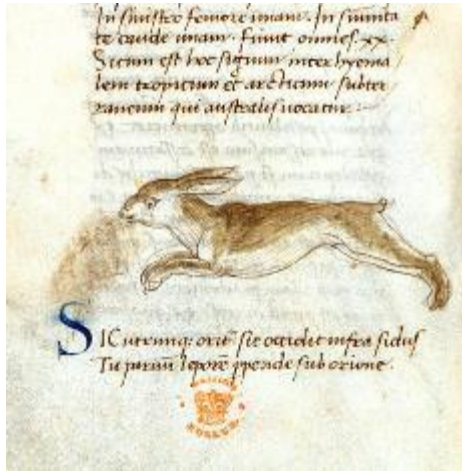 In sinistro femore unam. In sūmita
te caude unam. Fiunt omnes. xx.
Situm est hoc signum inter hyema
lem tropicum et arcticum subter
raneum qui australis uocatur.
SIC utrunq; orit̄ sic occidit infra sidus
Tu paruū leporē ꝑpende sub orione.